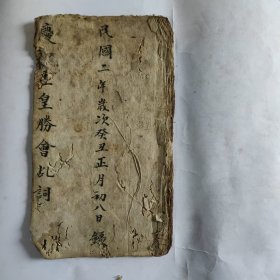 民國二年歲次癸丑正月初八日
慶皇勝會此詞